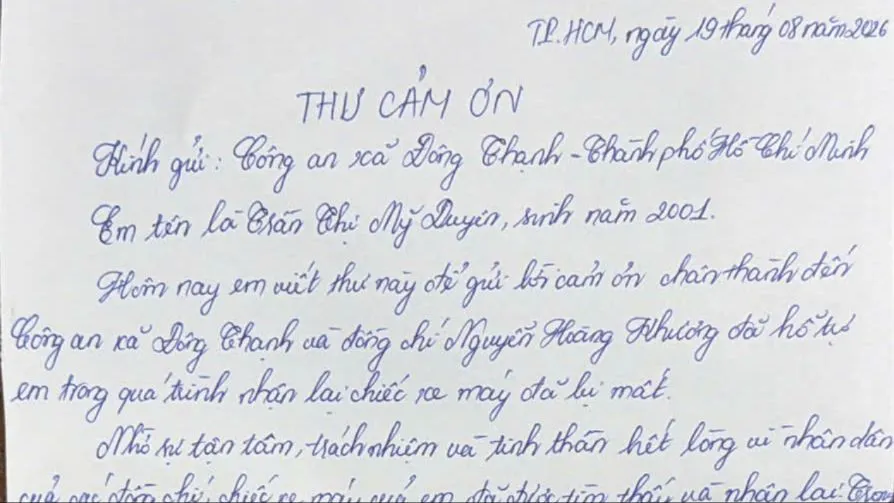 TP.HCM, ngày 19 tháng 08 năm 2026
THƯ CẢM ƠN
Kính gửi: Công an xã Đông Thạnh - Thành phố Hồ Chí Minh
Em tên là Trần Thị Mỹ Duyên, sinh năm 2001.
Hôm nay em viết thư này để gửi lời cảm ơn chân thành đến
Công an xã Đông Thạnh và đồng chí Nguyễn Hoàng Khương đã hỗ trợ
em trong quá trình nhận lại chiếc xe máy đã bị mất.
Nhờ sự tận tâm, trách nhiệm và tinh thần hết lòng vì nhân dân
của các đồng chí, chiếc xe máy của em đã được tìm thấy và nhận lại. Trong